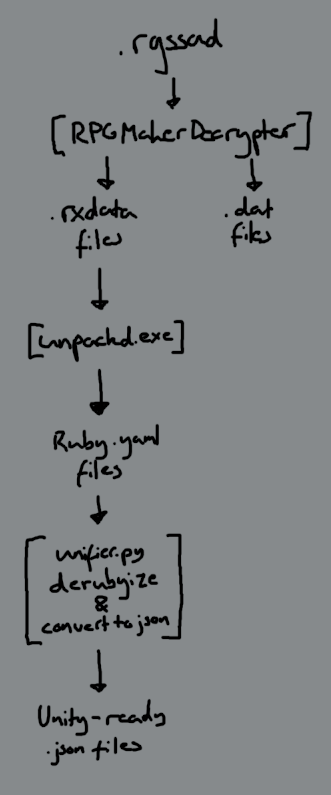 .rgssad
[RPGMakerDecrypter]
.rxdata
files
.dat
files
[unpackd.exe]
Ruby.yaml
files
unifier.py
derubyize
&
convert to json
Unity-ready
.json files